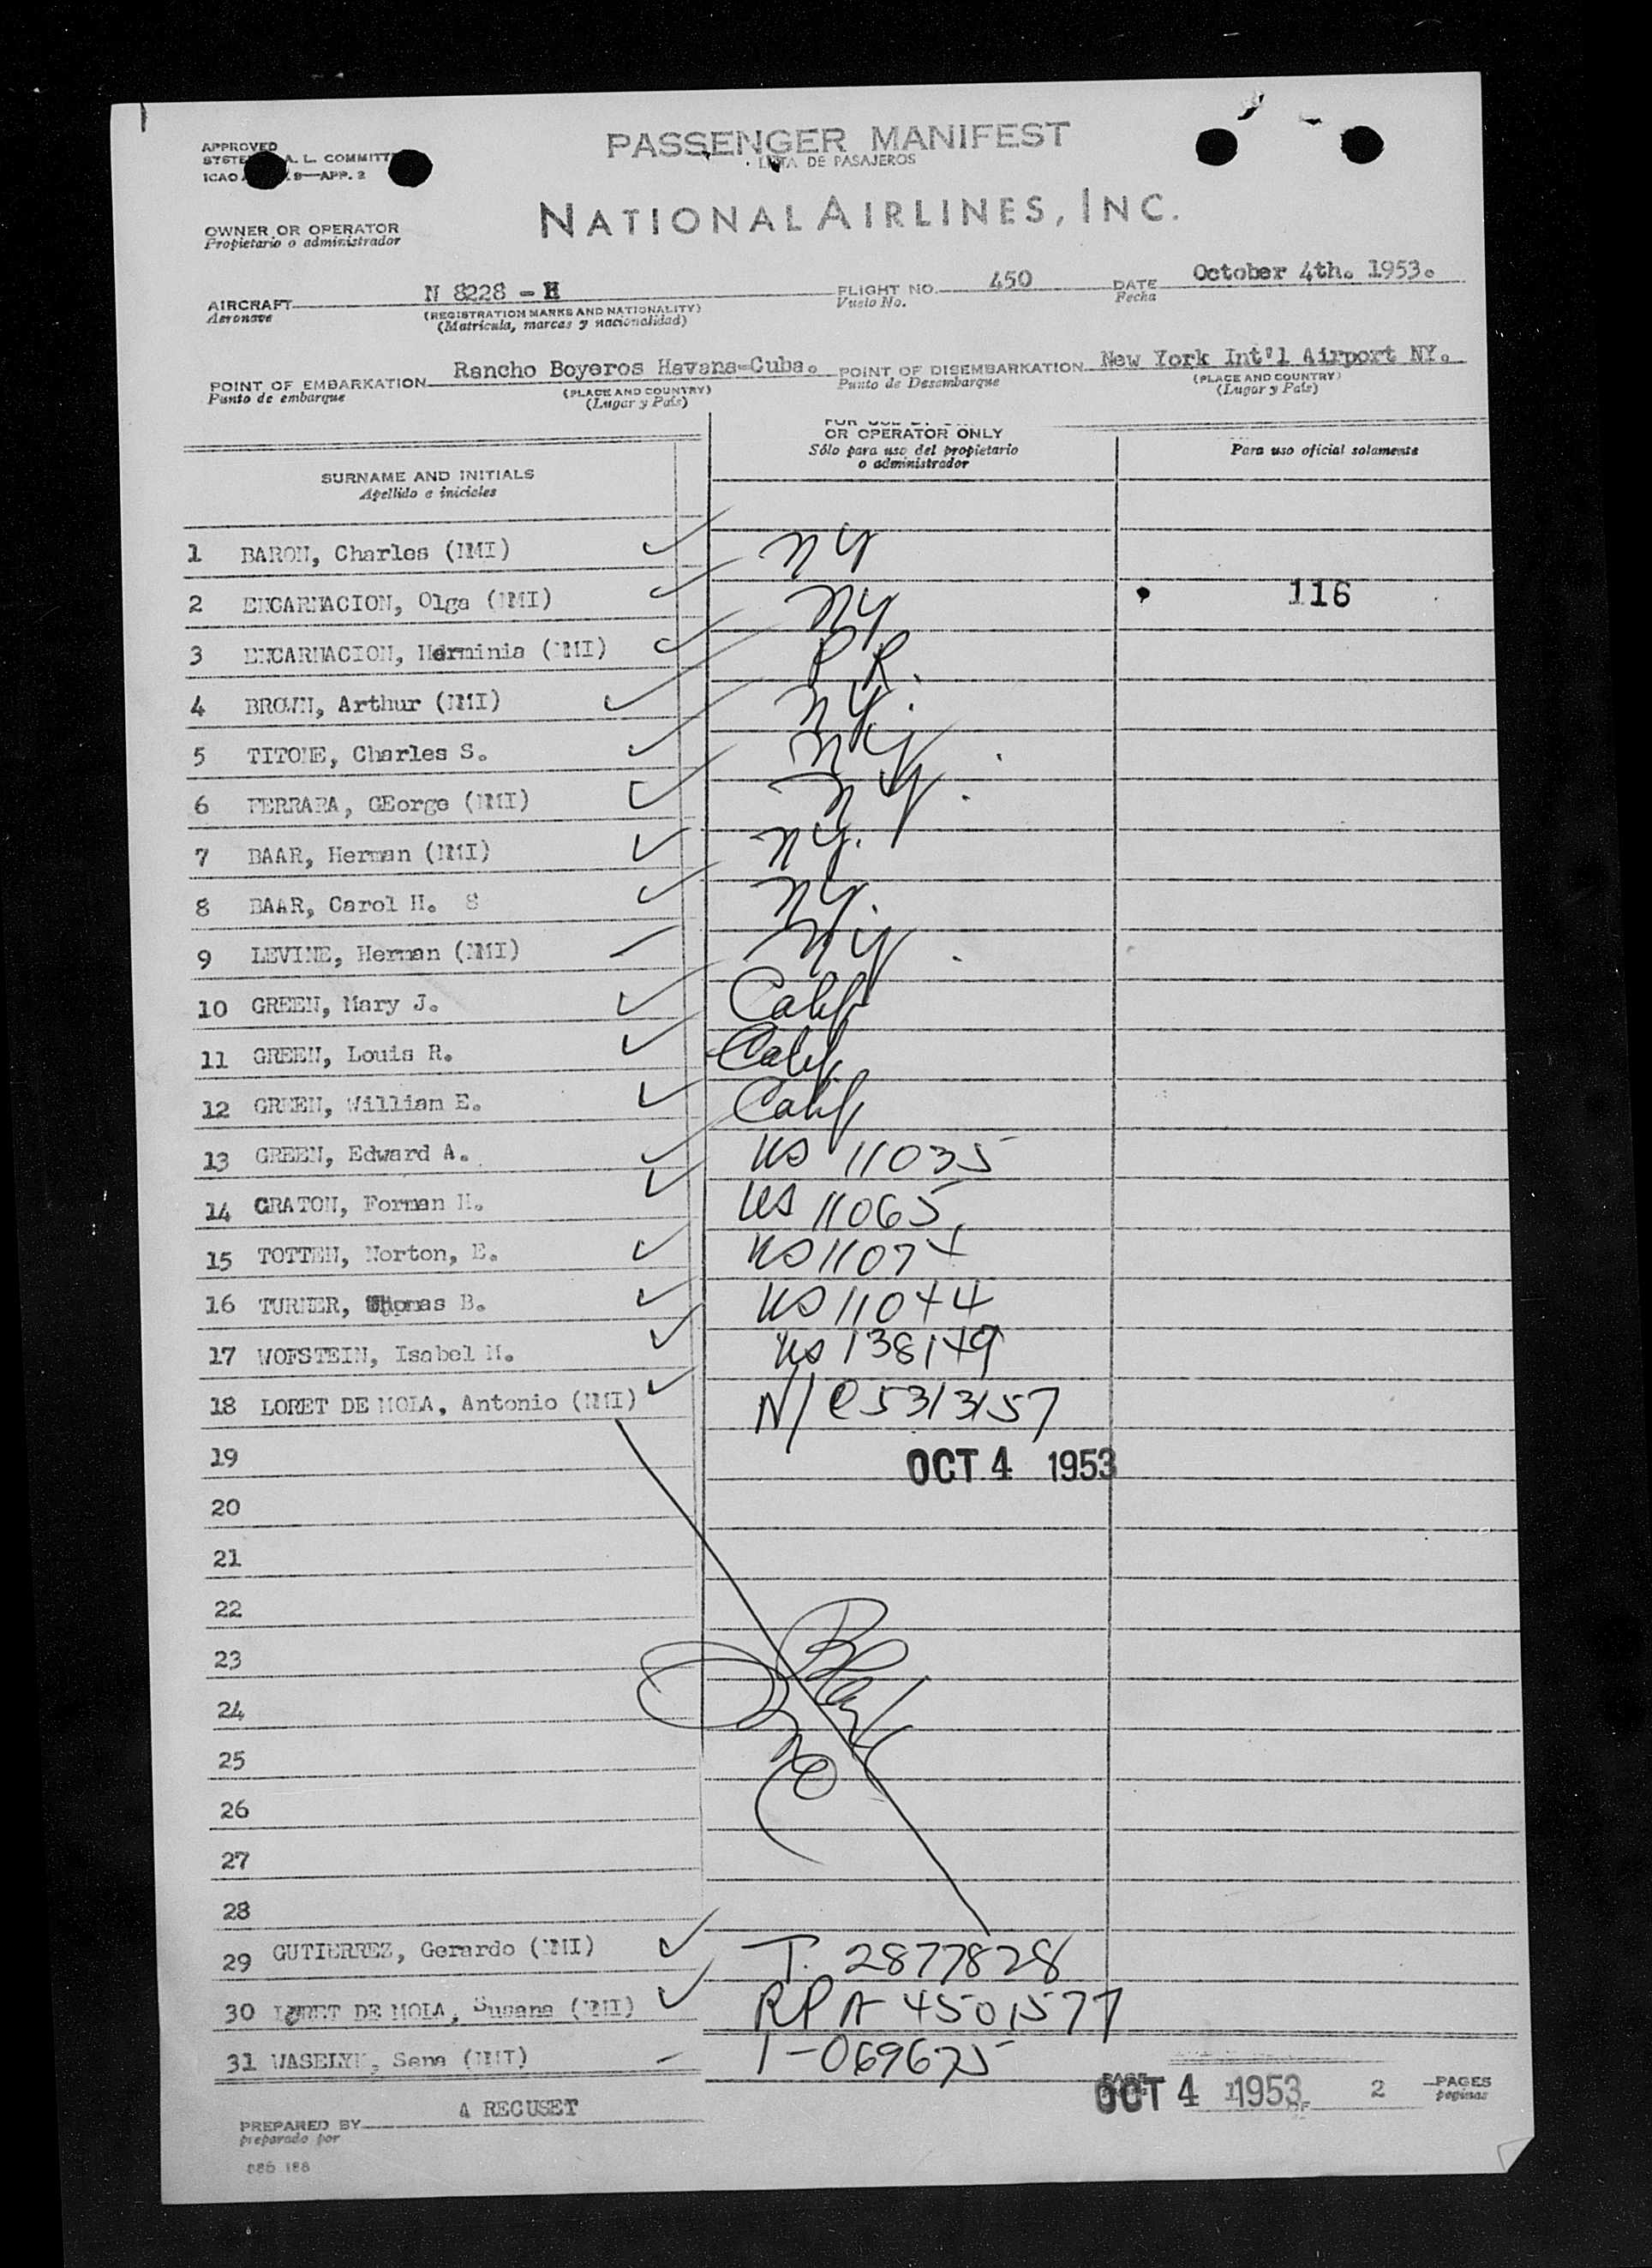 APPROVED
PASSENGER MANIFEST
A. L. COMMITT
LISTA DE PASAJEROS
ICAO 9—APP. 2
NATIONAL AIRLINES, INC.
OWNER OR OPERATOR
Propietario o administrador
AIRCRAFT N 8228 - H FLIGHT NO. 450 DATE October 4th. 1953.
Aeronave (REGISTRATION MARKS AND NATIONALITY) Vuelo No. Fecha
(Matrícula, marcas y nacionalidad)
POINT OF EMBARKATION Rancho Boyeros Havana-Cuba. POINT OF DISEMBARKATION New York Int'l Airport NY.
Punto de embarque (PLACE AND COUNTRY) Punto de Desembarque (PLACE AND COUNTRY)
(Lugar y País) (Lugar y País)
OR OPERATOR ONLY
Sólo para uso del propietario Para uso oficial solamente
o administrador
SURNAME AND INITIALS
Apellido e iniciales
1 BARON, Charles (NMI) NY
2 ENCARNACION, Olga (NMI) NY 116
3 ENCARNACION, Herminia (NMI) P.R.
4 BROWN, Arthur (NMI) NY.
5 TITONE, Charles S. NY
6 FERRARA, GEorge (NMI) NY.
7 BAAR, Herman (NMI) NY.
8 BAAR, Carol H. S NY.
9 LEVINE, Herman (NMI) NY.
10 GREEN, Mary J. Calif
11 GREEN, Louis R. Calif
12 GREEN, William E. Calif
13 GREEN, Edward A. US 11035
14 GRATON, Forman H. US 11065
15 TOTTEN, Norton, E. US 11074
16 TURNER, Thomas B. US 11044
17 WOFSTEIN, Isabel M. US 138149
18 LORET DE MOLA, Antonio (NMI) N/C 5313157
19 OCT 4 1953
20
21
22
23
24
25
26
27
28
29 GUTIERREZ, Gerardo (NMI) T. 2877828
30 LORET DE MOLA, Susana (NMI) RPA 4501577
31 WASELYK, Sena (NMI) 1-069675
OCT 4 1953 OF 2 PAGES
páginas
PREPARED BY A RECUSET
preparado por